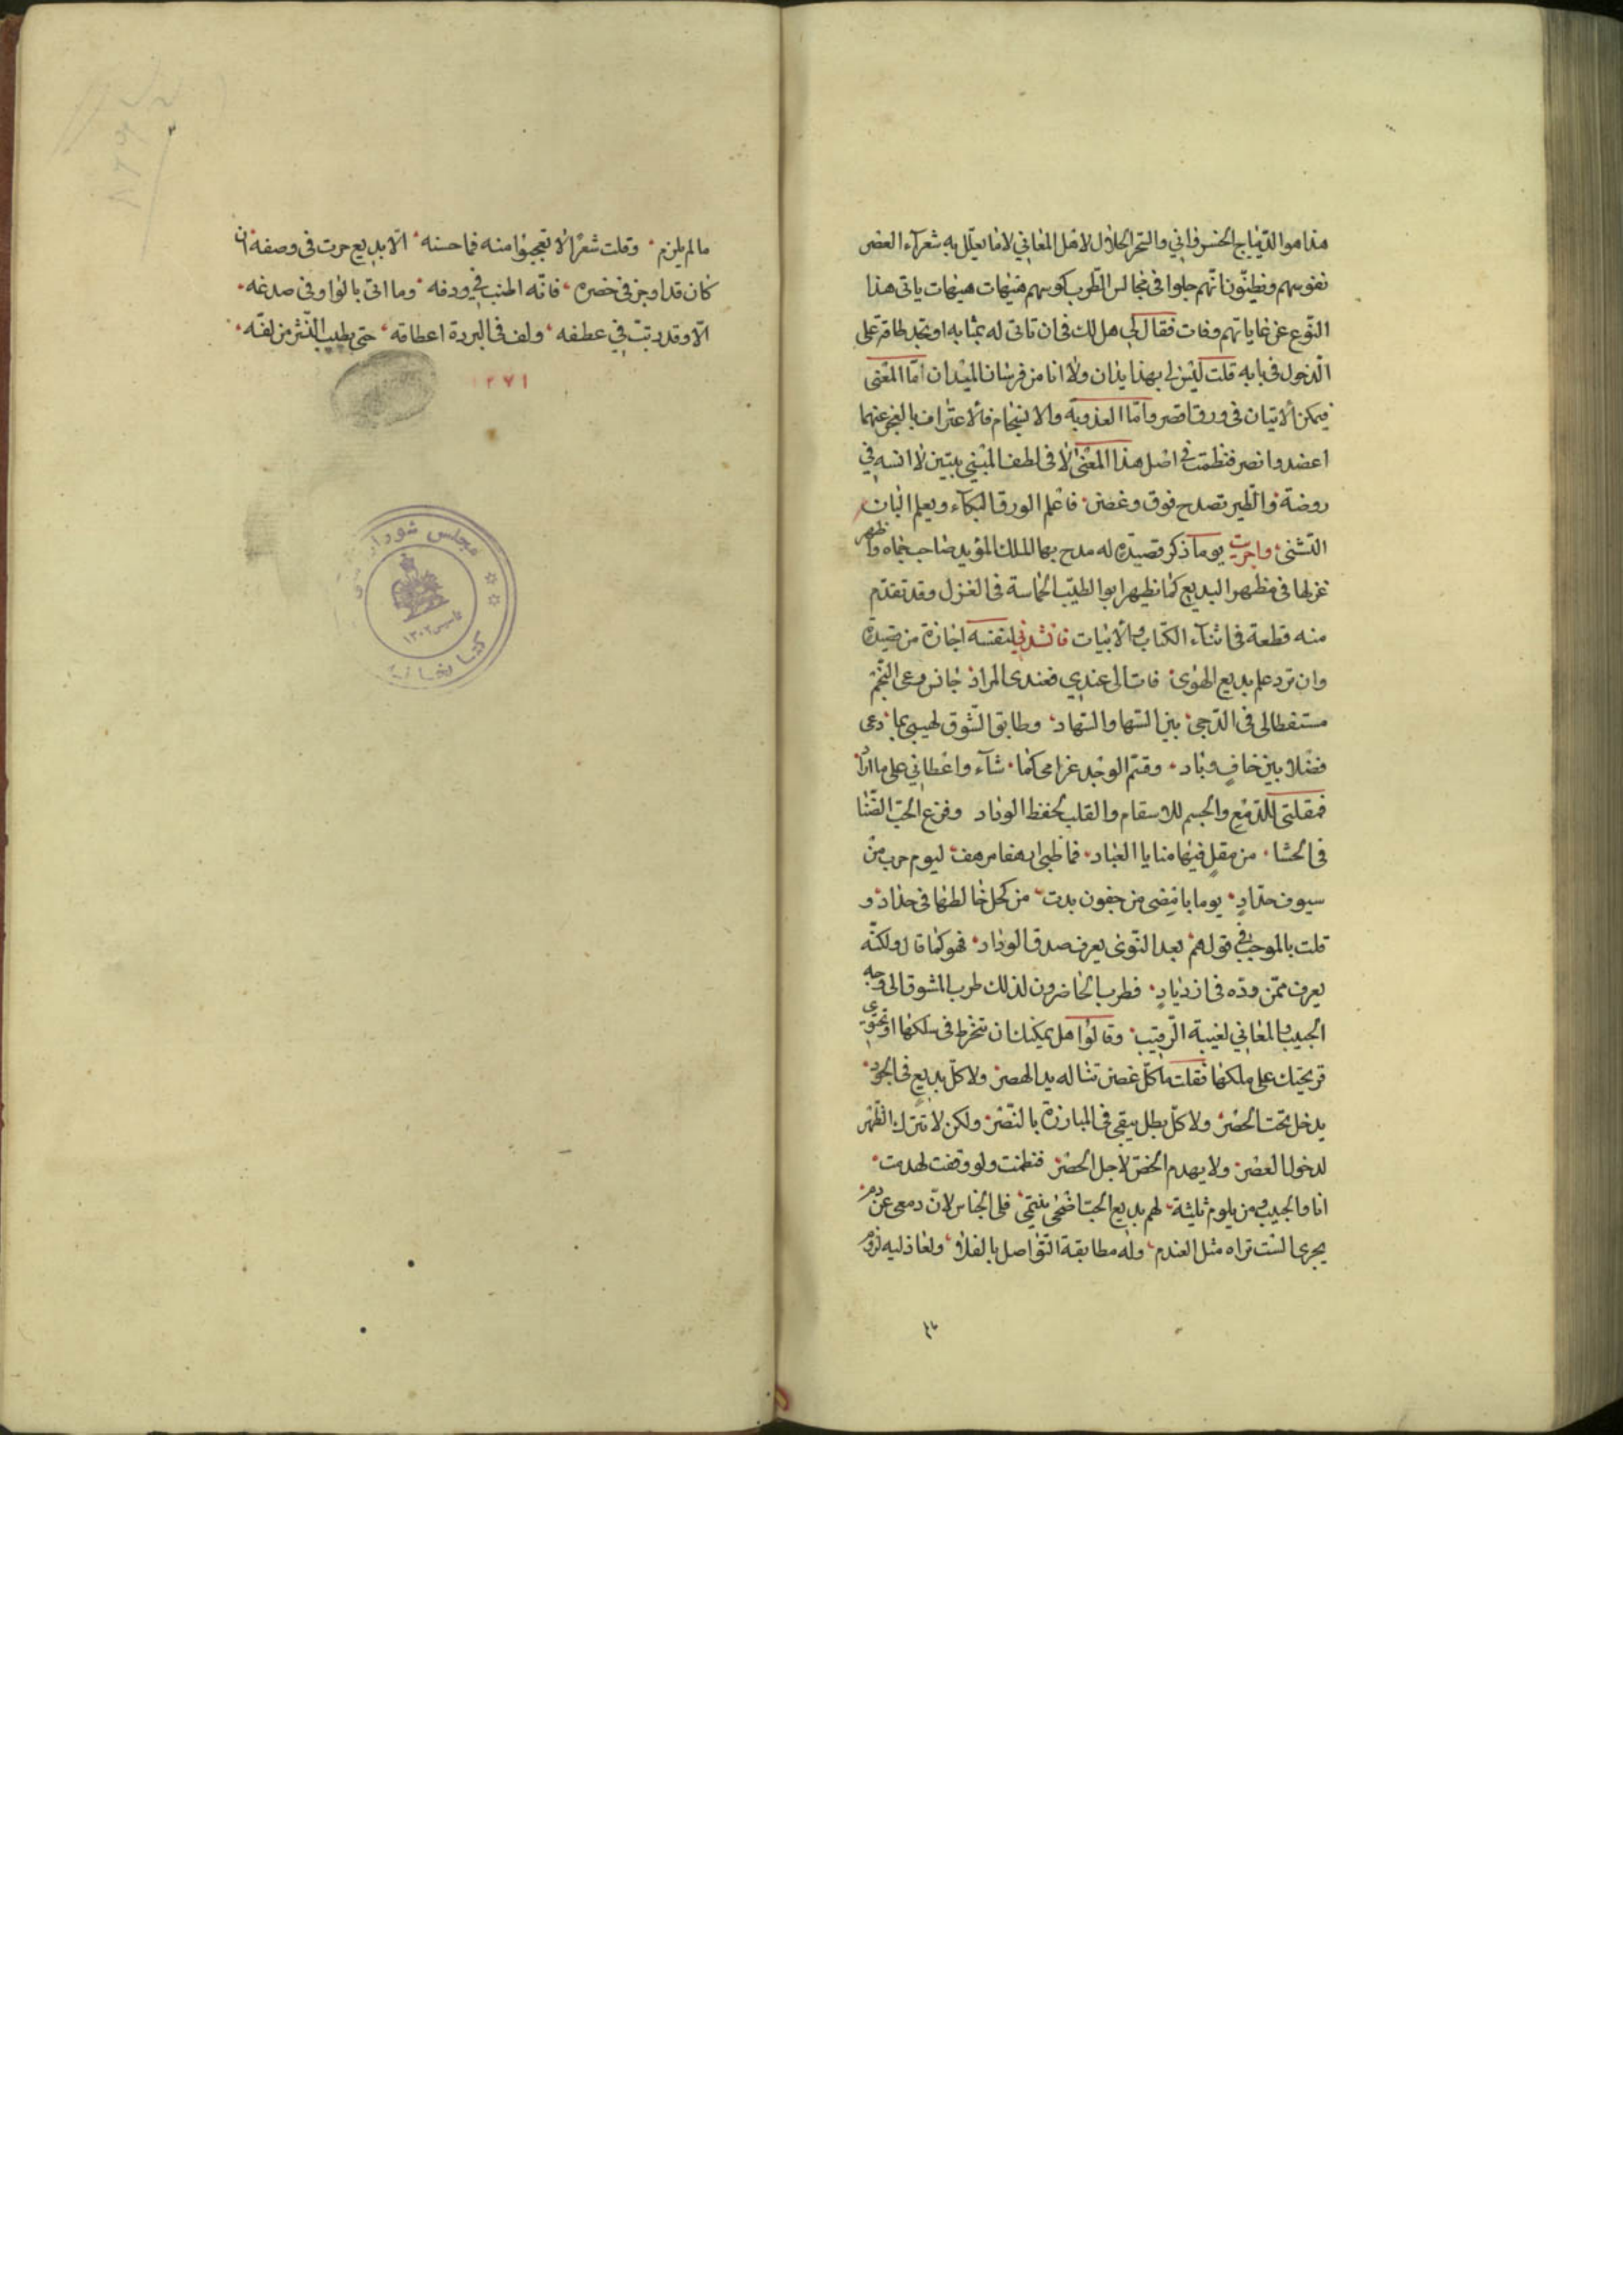 هذا هو الديباج الخسرواني والسحر الحلال لاهل المغاني لا ما يعلّل به شعرآء العصر
نفوسهم ويظنّون انّهم جلوا في مجالس الطّرب كوسهم هيهات هيهات ياتى هذا
النّوع عن غاياتهم وفات فقال لي هل لك في ان تاتى له بمثابه او تجد طاقة على
الدخول في بابه قلت ليس لي بهذا يدان ولا انا من فرسان الميدان امّا المعنى
فيمكن الاتيان في ورق اقصر وامّا العذوبة والانسجام فالاعتراف بالعجز عنهما
اعضد وانصر فنظمت في اصل هذا المعنى لا في لطف المبنى بيتين لا انسه في
روضة والطّير تصدح فوق وغصن فاعلم الورق البكآء ويعلم البان
التثنّى واجريت يوما ذكر قصيدة له مدح بها الملك المؤيد صاحب حماه واظهر
غزلها في مظهر البديع كما نظيهر ابو الطيّب الحماسة في الغزل وقد تقدّم
منه قطعة في اثنآء الكتاب والابيات فانشدني لنفسه اجازة من قصيدة
وان ترد علم بديع الهوى فات الى عندي فعندى المراد جانس دعى النجم
مستفطالى في الدّجى بين السّها والسّهاد وطابق الشّوق لهيبى بما دعى
فضلا بين خافٍ وباد وقسّم الوجد غرامى كما شآء واعطاني على ما اراد
فمقلتى للدّمع والجسم للاسقام والقلب لحفظ الوداد وفرّع الحبّ الضّنا
في الحشا من مقلٍ فيها منايا العباد فما ظبى ارهفا مرهف ليوم حرب من
سيوف حدادٍ يوما بامضى من جفون بدت من كحل خالطها في حداد و
قلت بالموجب في قولهم بعد النّوى يعرف صدق الوداد فهو كما قال ولكنّه
يعرف ممّن ودّه في ازديادٍ فطرب الحاضرون لذلك طرب المشوق الى وجه
الحبيب والمغاني لغيبة الرّقيب وقالوا هل يمكنك ان تنخرط في سلكها او تحتوي
قريحتك على ملكها فقلت ما كلّ غصن تناله يد الهصر ولا كلّ بديعٍ في الجود
يدخل تحت الحصر ولا كلّ بطل يبقى في المبارزة بالنّصر ولكن لا تترك الظّهر
لدخول العصر ولا يهدم الخصّ لاجل الحصر فنظمت ولو وقفت لهدمت
انا والحبيب ومن يلوم ثلثة لهم بديع الحبّ اضحى ينتمى فلى الجناس لانّ دمعى عن دم
يجرى الست تراه مثل العندم وله مطابقة التّواصل بالقلا ولعاذليه لزوم
ما لم يلزم وقلت شعرًا لا تعجبوا منه فما حسنه الّا بديع حرت في وصفه ان
كان قد اوجز في خصره فانّه اطنب في ردفه وما اتى بالواو في صدغه
الّا وقد رتبت في عطفه ولف في البردة اعطافه حتى يطيب النّشر من لفّه
٢٧١
مجلس شوراى
كتابخانه
تاسيس ١٣٠٢